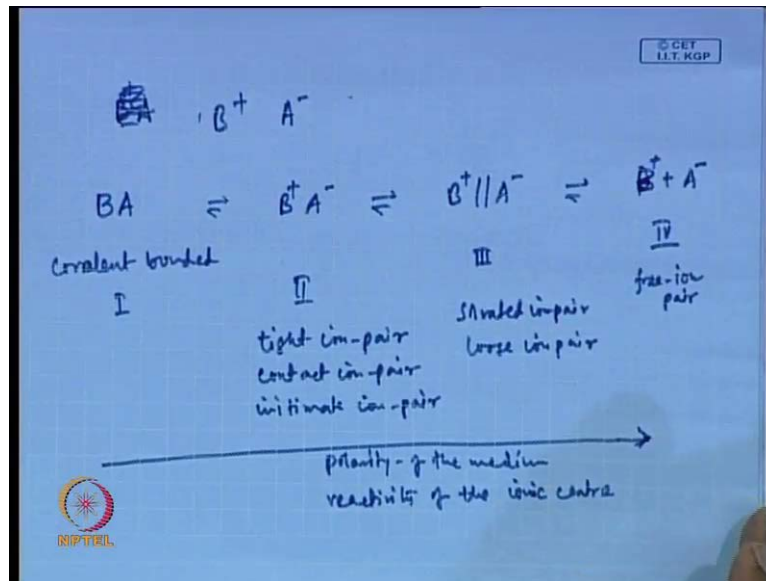 © CET
I.I.T. KGP
B⁺ A⁻
BA ⇌ B⁺A⁻ ⇌ B⁺//A⁻ ⇌ B⁺ + A⁻
covalent bonded
I
II
III
IV
tight ion-pair
contact ion-pair
intimate ion-pair
Solvated ion pair
loose ion pair
free-ion
pair
polarity of the medium
reactivity of the ionic centre
NPTEL